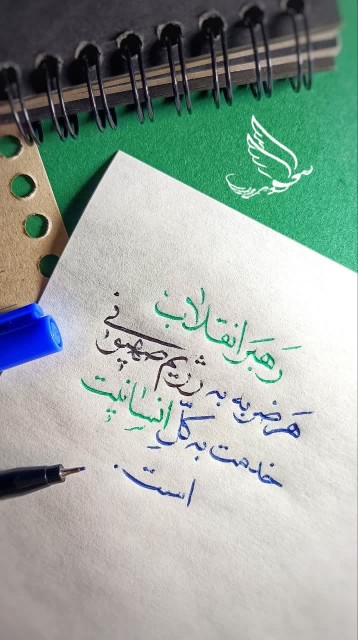 رهبر انقلاب
هر ضربه به رژیم صهیونی
خدمت به کلّ انسانیت
است.